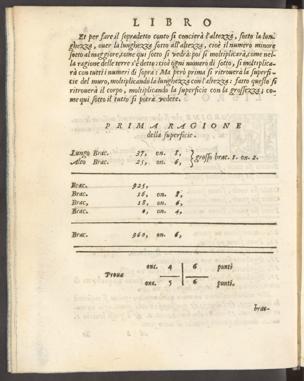 LIBRO
Et per fare il sopradetto conto si concierà l'altezza, sotto la lun-
ghezza, ouer la lunghezza sotto all'altezza, cioè il numero minore
sotto al maggiore, come qui sotto si vedrà poi si moltiplicarà, come nel-
la ragione delle terre s'è detto: cioè ogni numero di sotto, si moltiplica-
rà con tutti i numeri di sopra: Ma però prima si ritrouerà la superfi-
cie del muro, moltiplicando la lunghezza con l'altezza: fatto questo si
ritrouerà il corpo, moltiplicando la superficie con la grossezza; co-
me qui sotto il tutto si potrà vedere.
PRIMA RAGIONE
della superficie.
Lungo Brac. 37, on. 8, } grosso brac. 1. on. 2.
Alto Brac. 25, on. 6,
Brac. 925,
Brac. 16, on. 8,
Brac. 18, on. 6,
Brac. 0, on. 4,
Brac. 960, on. 6,
onc. 4 | 6 punti
Proua
onc. 5 | 6 punti.
brac-